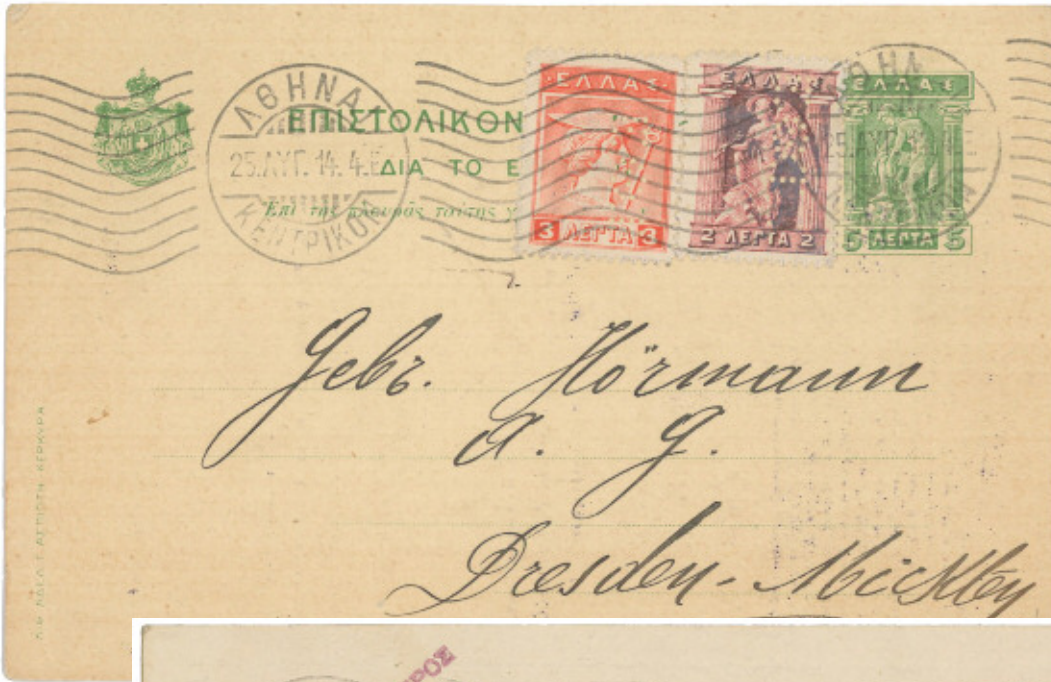 ΑΘΗΝΑΙ
25.ΑΥΓ.14.4.Ε
ΚΕΝΤΡΙΚΟΝ
ΕΠΙΣΤΟΛΙΚΟΝ
ΔΙΑ ΤΟ Ε
Ἐπὶ τῆς πλευρᾶς ταύτης χ
ΕΛΛΑΣ
3 ΛΕΠΤΑ 3
ΕΛΛΑΣ
2 ΛΕΠΤΑ 2
ΕΛΛΑΣ
5 ΛΕΠΤΑ 5
Gebr. Hörmann
A. G.
Dresden-
ΡΟΣ